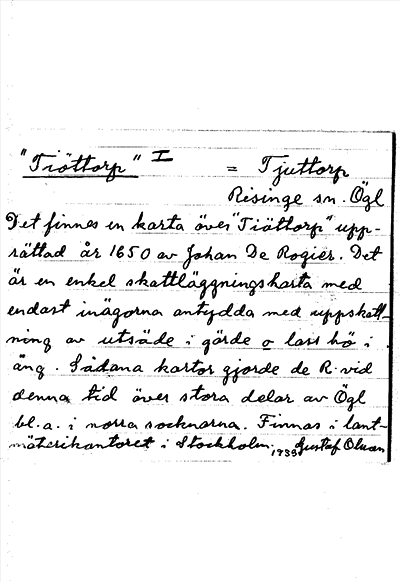 "Tiöttorp" I = Tjuttorp
Risinge sn. Ögl
Det finnes en karta över "Tiöttorp" upp-
rättad år 1650 av Johan De Rogier. Det
är en enkel skattläggningskarta med
endast inägorna antydda med uppskatt-
ning av utsäde i gärde o lass hö i
äng. Sådana kartor gjorde de R. vid
denna tid över stora delar av Ögl
bl.a. i norra socknarna. Finnas i lant-
mäterikontoret i Stockholm. 1935 Gustaf Olsson